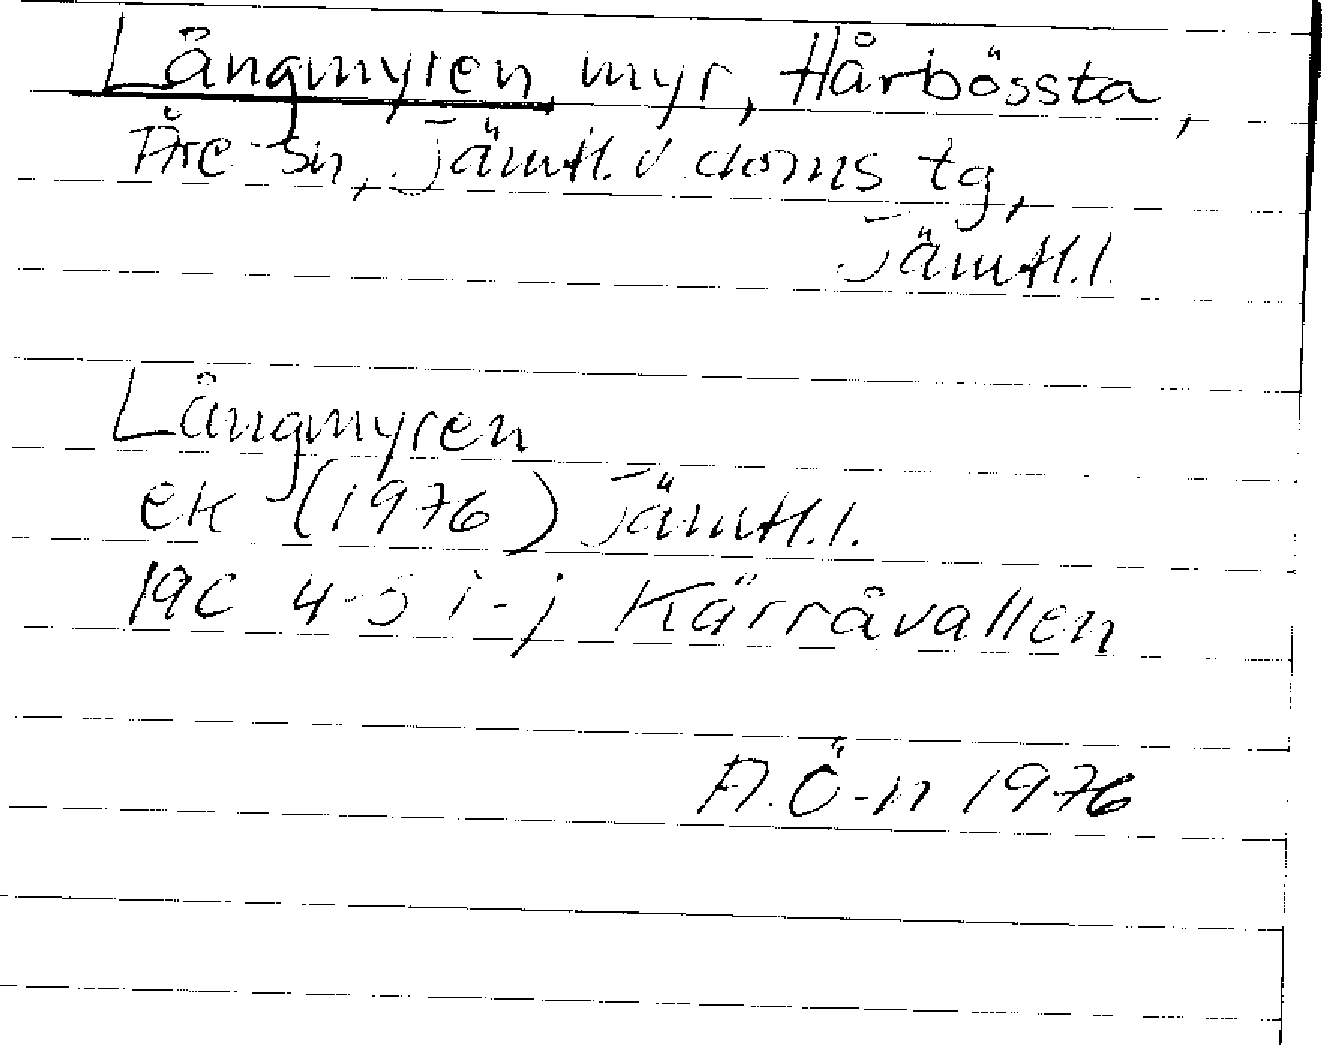 Långmyren, myr, Hårbössta,
Åre sn, Jämtl. v doms tg,
Jämtl.l.
Långmyren
ek (1976) Jämtl.l.
19C 4-5 i-j Kärråvallen
A.Ö-n 1976